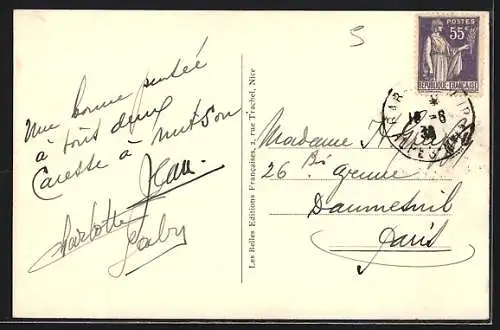 Une bonne pensée
à tous deux
Caresse à
Jean.
Charlotte
Gaby
Les Belles Editions Françaises, 2, rue Trachel, Nice
5
POSTES
55c
REPUBLIQUE FRANÇAISE
18 - 6
38
Madame
26 Bis Avenue
Daumesnil
Paris